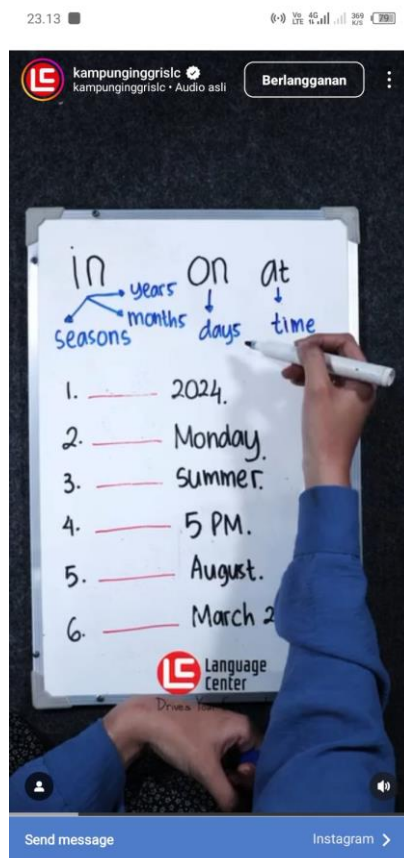 23.13
Vo LTE 4G 369 K/S 79
kampunginggrislc
kampunginggrislc • Audio asli
Berlangganan
in on at
years
months
seasons
days
time
1. ____ 2024.
2. ____ Monday.
3. ____ Summer.
4. ____ 5 PM.
5. ____ August.
6. ____ March 2
LC Language
Center
Drives
Send message
Instagram